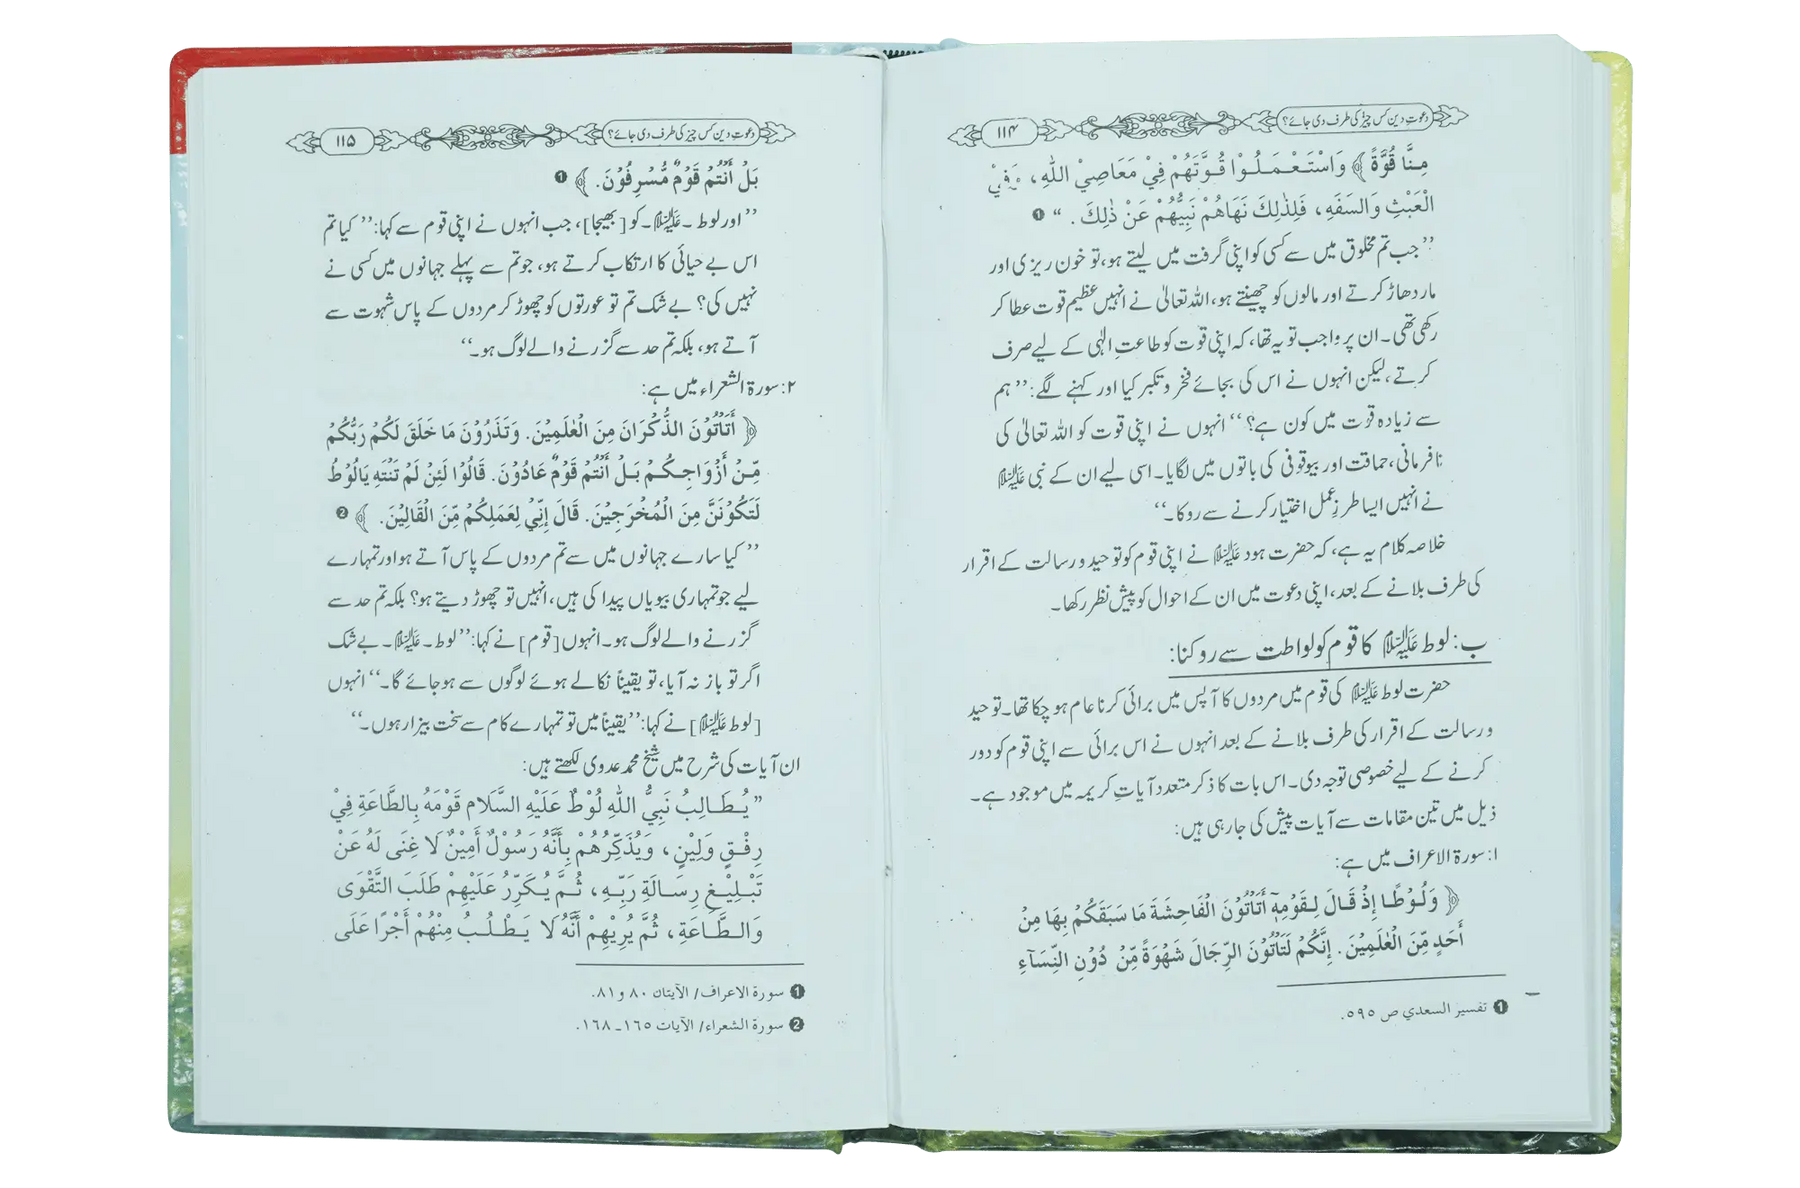 دعوتِ دین کس چیز کی طرف دی جائے؟
۱۱۴
مِنَّا قُوَّةً﴾ وَاسْتَعْمَلُوْا قُوَّتَهُمْ فِيْ مَعَاصِيْ اللّٰهِ، وَفِيْ
الْعَبْثِ وَالسَفَهِ، فَلِذٰلِكَ نَهَاهُمْ نَبِيُّهُمْ عَنْ ذٰلِكَ . “ ❶
’’جب تم مخلوق میں سے کسی کو اپنی گرفت میں لیتے ہو، تو خون ریزی اور
مار دھاڑ کرتے اور مالوں کو چھینتے ہو، اللہ تعالیٰ نے انہیں عظیم قوت عطا کر
رکھی تھی۔ ان پر واجب تو یہ تھا، کہ اپنی قوت کو طاعتِ الٰہی کے لیے صرف
کرتے، لیکن انہوں نے اس کی بجائے فخر و تکبر کیا اور کہنے لگے: ’’ہم
سے زیادہ قوّت میں کون ہے؟‘‘ انہوں نے اپنی قوت کو اللہ تعالیٰ کی
نافرمانی، حماقت اور بیوقوفی کی باتوں میں لگایا۔ اسی لیے ان کے نبی علیہ السلام
نے انہیں ایسا طرزِ عمل اختیار کرنے سے روکا۔‘‘
خلاصہ کلام یہ ہے، کہ حضرت ہود علیہ السلام نے اپنی قوم کو توحید و رسالت کے اقرار
کی طرف بلانے کے بعد، اپنی دعوت میں ان کے احوال کو پیش نظر رکھا۔
ب: لوط علیہ السلام کا قوم کو لواطت سے روکنا:
حضرت لوط علیہ السلام کی قوم میں مردوں کا آپس میں برائی کرنا عام ہو چکا تھا۔ توحید
و رسالت کے اقرار کی طرف بلانے کے بعد انہوں نے اس برائی سے اپنی قوم کو دور
کرنے کے لیے خصوصی توجہ دی۔ اس بات کا ذکر متعدد آیاتِ کریمہ میں موجود ہے۔
ذیل میں تین مقامات سے آیات پیش کی جا رہی ہیں:
۱: سورۃ الاعراف میں ہے:
﴿وَلُوْطًا إِذْ قَالَ لِقَوْمِهٖٓ أَتَأْتُوْنَ الْفَاحِشَةَ مَا سَبَقَكُمْ بِهَا مِنْ
أَحَدٍ مِّنَ الْعٰلَمِيْنَ. إِنَّكُمْ لَتَأْتُوْنَ الرِّجَالَ شَهْوَةً مِّنْ دُوْنِ النِّسَآءِ
❶ تفسير السعدي ص ٥٩٥.
دعوتِ دین کس چیز کی طرف دی جائے؟
۱۱۵
بَلْ أَنْتُمْ قَوْمٌ مُّسْرِفُوْنَ.﴾ ❶
’’اور لوط ۔ علیہ السلام ۔ کو [بھیجا]، جب انہوں نے اپنی قوم سے کہا: ’’کیا تم
اس بے حیائی کا ارتکاب کرتے ہو، جو تم سے پہلے جہانوں میں کسی نے
نہیں کی؟ بے شک تم تو عورتوں کو چھوڑ کر مردوں کے پاس شہوت سے
آتے ہو، بلکہ تم حد سے گزرنے والے لوگ ہو۔‘‘
۲: سورۃ الشعراء میں ہے:
﴿أَتَأْتُوْنَ الذُّكْرَانَ مِنَ الْعٰلَمِيْنَ. وَتَذَرُوْنَ مَا خَلَقَ لَكُمْ رَبُّكُمْ
مِّنْ أَزْوَاجِكُمْ بَلْ أَنْتُمْ قَوْمٌ عَادُوْنَ. قَالُوْا لَئِنْ لَمْ تَنْتَهِ يَالُوْطُ
لَتَكُوْنَنَّ مِنَ الْمُخْرَجِيْنَ. قَالَ إِنِّيْ لِعَمَلِكُمْ مِّنَ الْقَالِيْنَ. ﴾ ❷
’’کیا سارے جہانوں میں سے تم مردوں کے پاس آتے ہو اور تمہارے
لیے جو تمہاری بیویاں پیدا کی ہیں، انہیں تو چھوڑ دیتے ہو؟ بلکہ تم حد سے
گزرنے والے لوگ ہو۔ انہوں [قوم] نے کہا: ’’لوط ۔ علیہ السلام ۔ بے شک
اگر تو باز نہ آیا، تو یقیناً نکالے ہوئے لوگوں سے ہو جائے گا۔‘‘ انہوں
[لوط علیہ السلام] نے کہا: ’’یقیناً میں تو تمہارے کام سے سخت بیزار ہوں۔‘‘
ان آیات کی شرح میں شیخ محمد عدوی لکھتے ہیں:
”يُطَالِبُ نَبِيُّ اللّٰهِ لُوْطٌ عَلَيْهِ السَّلَام قَوْمَهُ بِالطَّاعَةِ فِيْ
رِفْقٍ وَلِيْنٍ، وَيُذَكِّرُهُمْ بِأَنَّهُ رَسُوْلٌ أَمِيْنٌ لَا غِنَى لَهُ عَنْ
تَبْلِيْغِ رِسَالَةِ رَبِّهِ، ثُمَّ يُكَرِّرُ عَلَيْهِمْ طَلَبَ التَّقْوَى
وَالطَّاعَةِ، ثُمَّ يُرِيْهِمْ أَنَّهُ لَا يَطْلُبُ مِنْهُمْ أَجْرًا عَلَى
❶ سورة الاعراف/ الآيتان ٨٠ و٨١.
❷ سورة الشعراء/ الآيات ١٦٥ـ١٦٨.